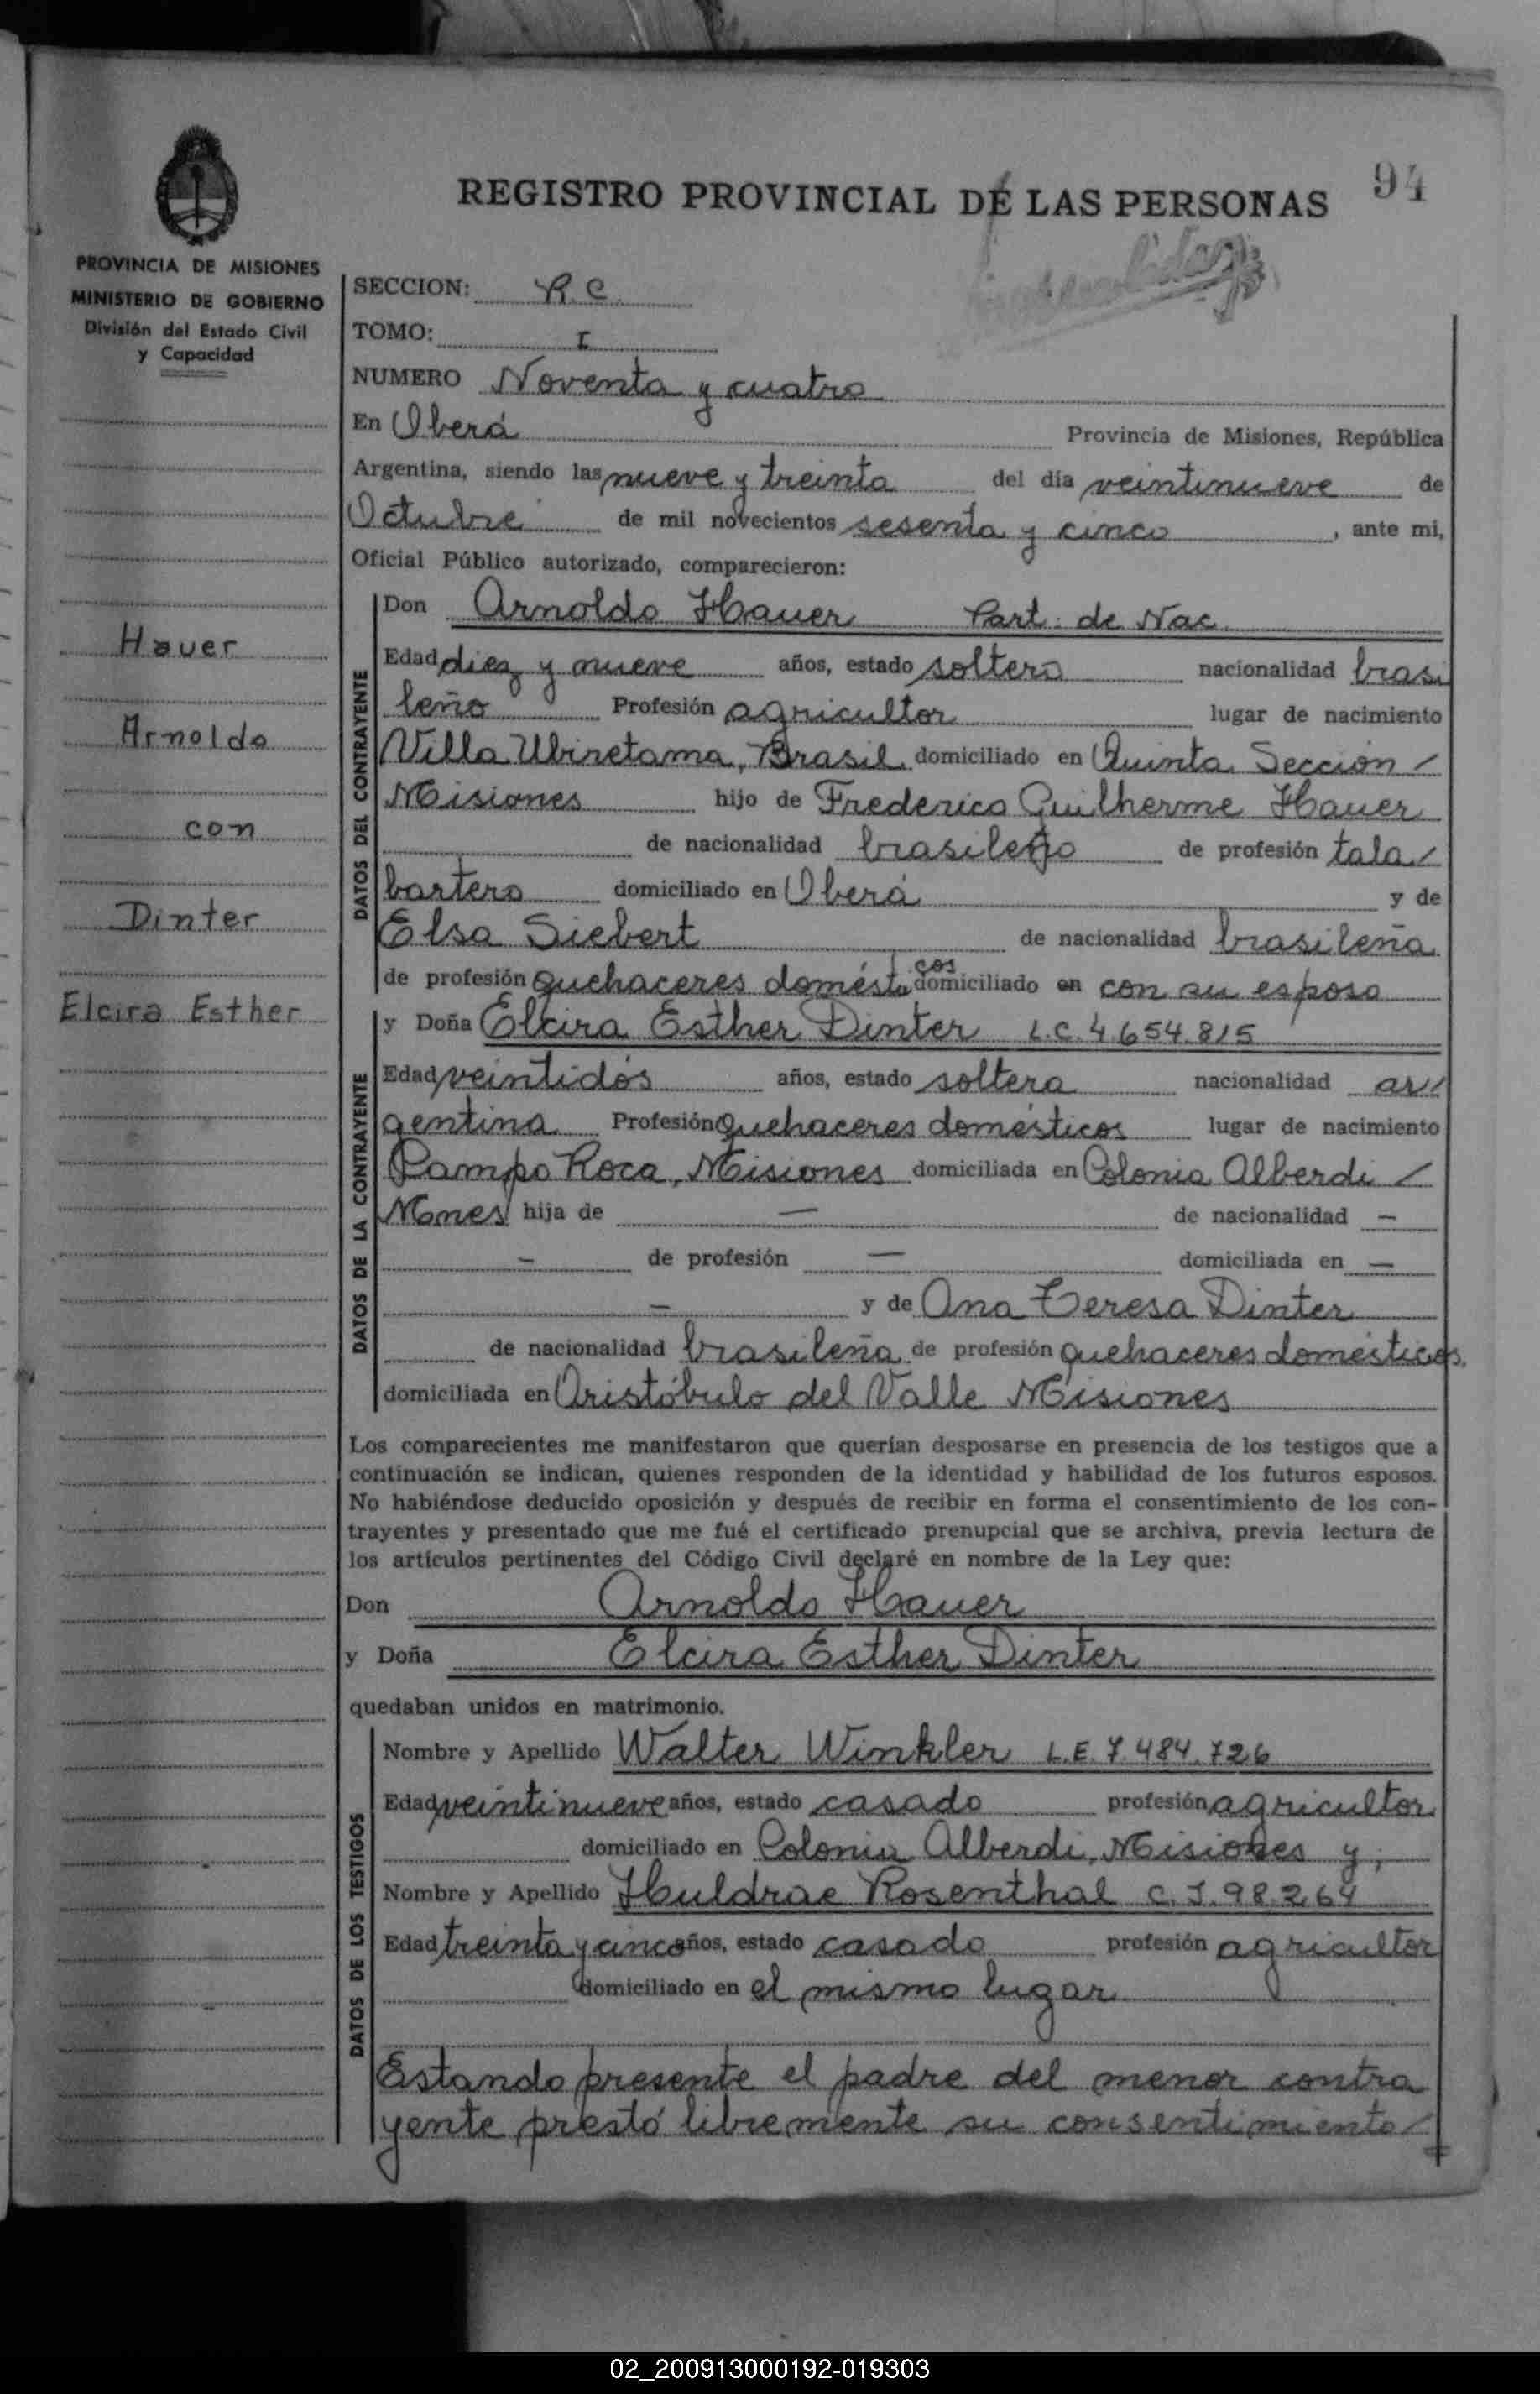 94
REGISTRO PROVINCIAL DE LAS PERSONAS
PROVINCIA DE MISIONES
MINISTERIO DE GOBIERNO
División del Estado Civil
y Capacidad
Hauer
Arnoldo
con
Dinter
Elcira Esther
SECCION: R.C.
TOMO: I
NUMERO Noventa y cuatro
En Oberá Provincia de Misiones, República
Argentina, siendo las nueve y treinta del día veintinueve de
Octubre de mil novecientos sesenta y cinco, ante mi,
Oficial Público autorizado, comparecieron:
DATOS DEL CONTRAYENTE
Don Arnoldo Hauer Part. de Nac.
Edad diez y nueve años, estado soltero nacionalidad brasi
leño Profesión agricultor lugar de nacimiento
Villa Ubiretama, Brasil domiciliado en Quinta Sección /
Misiones hijo de Frederico Guilherme Hauer
de nacionalidad brasileño de profesión tala/
bartero domiciliado en Oberá y de
Elsa Siebert de nacionalidad brasileña
de profesión quehaceres domésticos domiciliado en con su esposo
DATOS DE LA CONTRAYENTE
y Doña Elcira Esther Dinter L.C. 4.654.815
Edad veintidós años, estado soltera nacionalidad ar/
gentina Profesión quehaceres domésticos lugar de nacimiento
Pampo Roca, Misiones domiciliada en Colonia Alberdi /
Mnes/ hija de — de nacionalidad —
— de profesión — domiciliada en —
— y de Ana Teresa Dinter
de nacionalidad brasileña de profesión quehaceres domésticos,
domiciliada en Aristóbulo del Valle Misiones
Los comparecientes me manifestaron que querían desposarse en presencia de los testigos que a
continuación se indican, quienes responden de la identidad y habilidad de los futuros esposos.
No habiéndose deducido oposición y después de recibir en forma el consentimiento de los con-
trayentes y presentado que me fué el certificado prenupcial que se archiva, previa lectura de
los artículos pertinentes del Código Civil declaré en nombre de la Ley que:
Don Arnoldo Hauer
y Doña Elcira Esther Dinter
quedaban unidos en matrimonio.
DATOS DE LOS TESTIGOS
Nombre y Apellido Walter Winkler L.E. 7.484.726
Edad veintinueve años, estado casado profesión agricultor
domiciliado en Colonia Alberdi, Misiones y;
Nombre y Apellido Huldrae Rosenthal C.I. 98.264
Edad treinta y cinco años, estado casado profesión agricultor
domiciliado en el mismo lugar
Estando presente el padre del menor contra
yente prestó libremente su consentimiento/
02_200913000192-019303